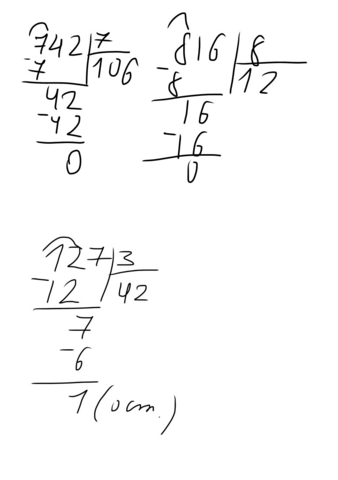 742 7
-7 106
42
-42
0
816 8
-8 12
16
-16
0
127 3
-12 42
7
-6
1 (ост.)